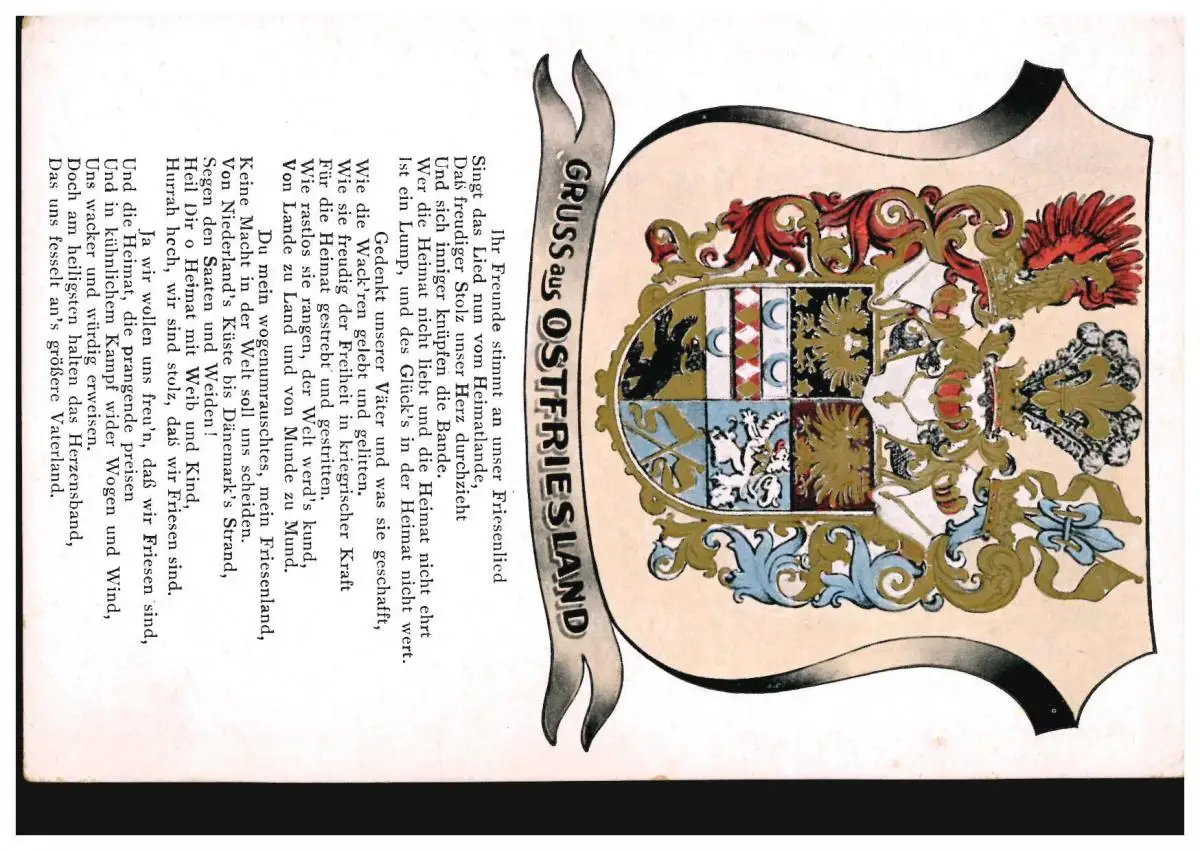 GRUSS aus OSTFRIESLAND
Ihr Freunde stimmt an unser Friesenlied
Singt das Lied nun vom Heimatlande,
Daß freudiger Stolz unser Herz durchzieht
Und sich inniger knüpfen die Bande.
Wer die Heimat nicht liebt und die Heimat nicht ehrt
Ist ein Lump, und des Glück's in der Heimat nicht wert.
Gedenkt unserer Väter und was sie geschafft,
Wie die Wack'ren gelebt und gelitten.
Wie sie freudig der Freiheit in kriegrischer Kraft
Für die Heimat gestrebt und gestritten.
Wie rastlos sie rangen, der Welt werd's kund,
Von Lande zu Land und von Munde zu Mund.
Du mein wogenumrauschtes, mein Friesenland,
Keine Macht in der Welt soll uns scheiden.
Von Niederland's Küste bis Dänemark's Strand,
Segen den Saaten und Weiden!
Heil Dir o Heimat mit Weib und Kind,
Hurrah hoch, wir sind stolz, daß wir Friesen sind.
Ja wir wollen uns freu'n, daß wir Friesen sind,
Und die Heimat, die prangende preisen
Und in kühnlichem Kampf wider Wogen und Wind,
Uns wacker und würdig erweisen.
Doch am heiligsten halten das Herzensband,
Das uns fesselt an's größere Vaterland.